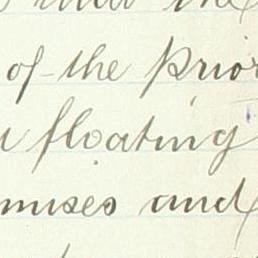 the
of the prior
floating
mises and